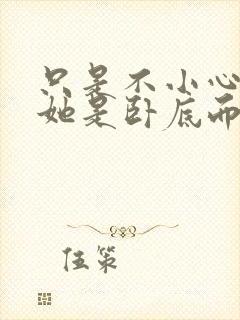 只是不小心
她是卧底而
伍策